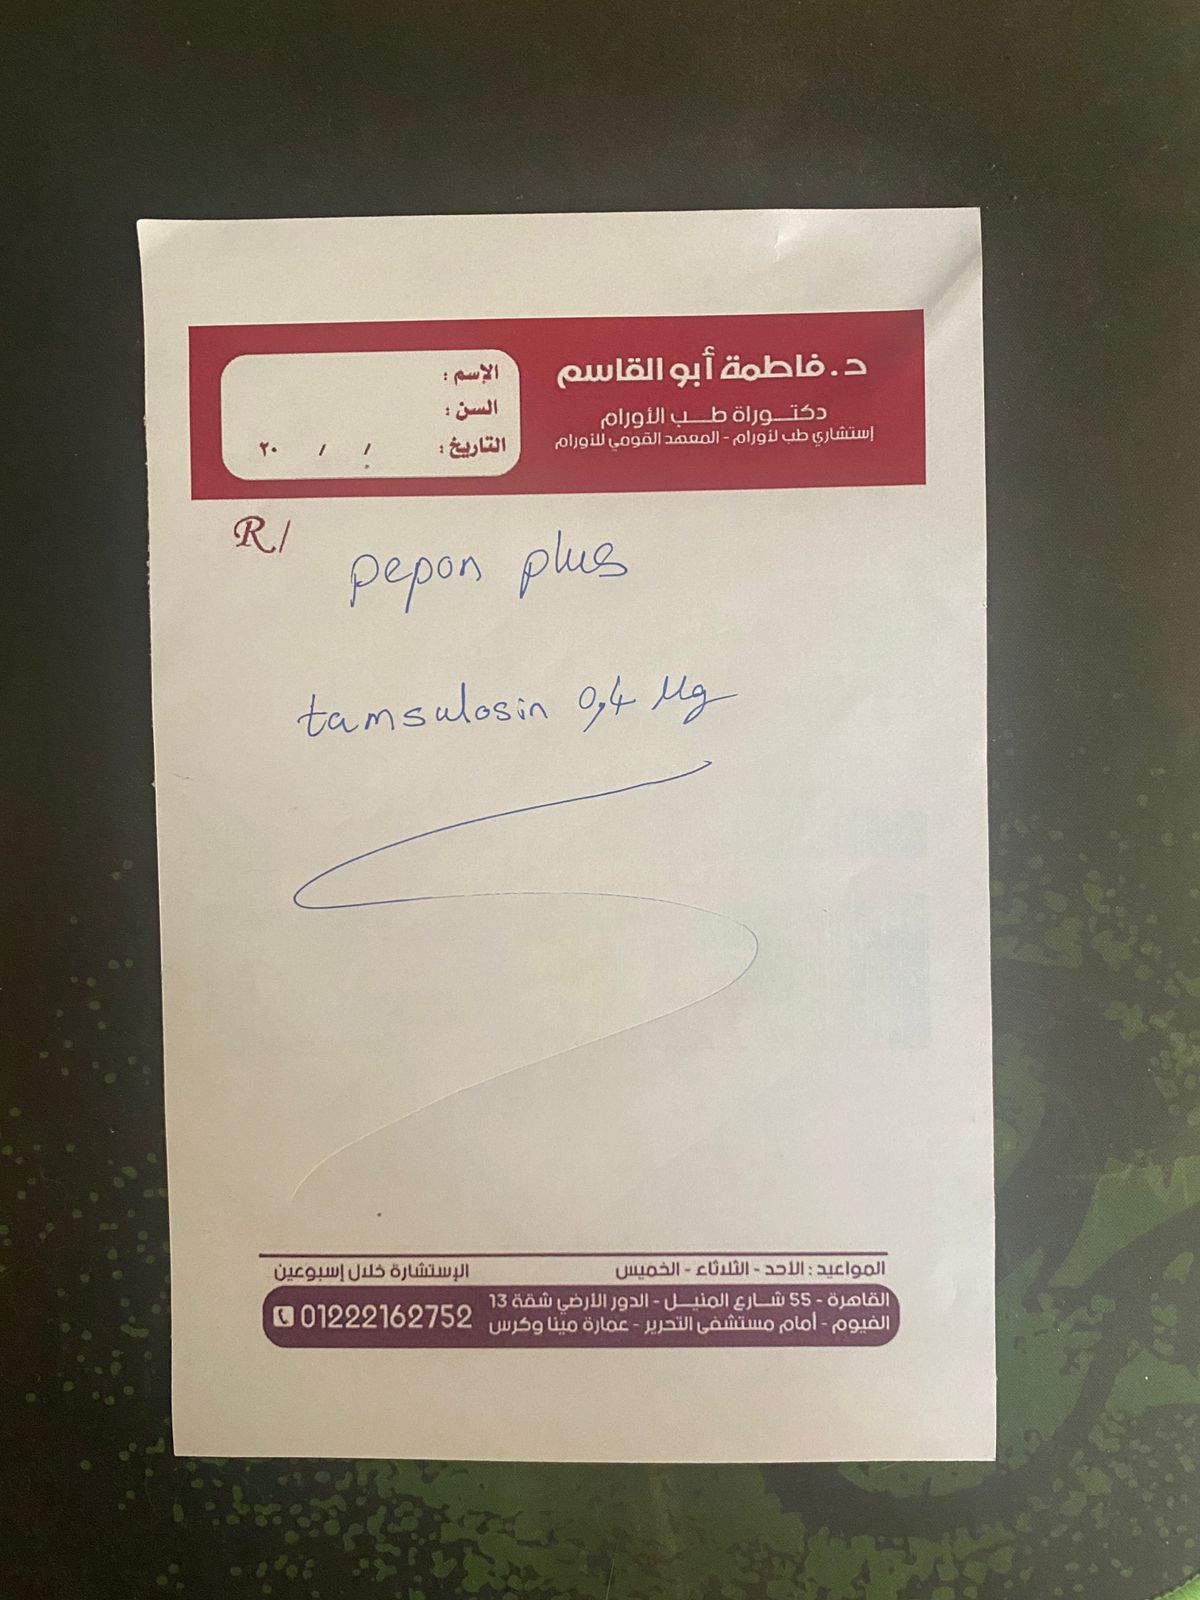 د. فاطمة أبو القاسم
دكتوراة طب الأورام
إستشاري طب لأورام - المعهد القومي للأورام
الإسم :
السن :
التاريخ : / / ٢٠
R/
pepon plus
tamsulosin 0,4 Mg
المواعيد : الأحد - الثلاثاء - الخميس
الإستشارة خلال إسبوعين
القاهرة - 55 شارع المنيل - الدور الأرضي شقة 13
الفيوم - أمام مستشفى التحرير - عمارة مينا وكرس
01222162752